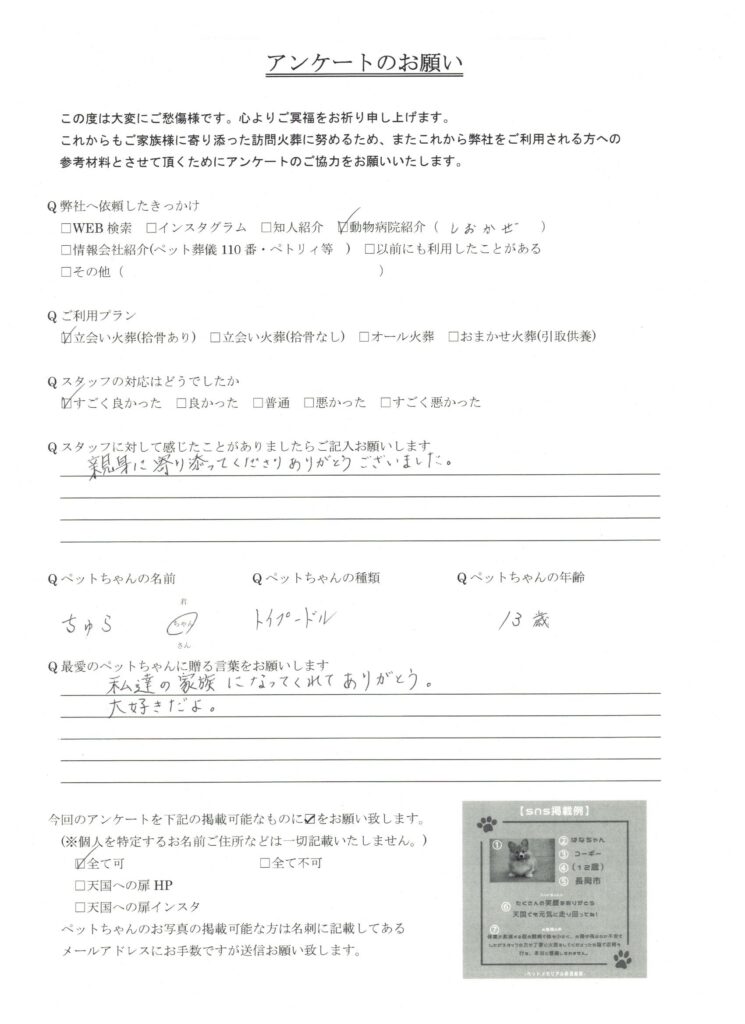 アンケートのお願い
この度は大変にご愁傷様です。心よりご冥福をお祈り申し上げます。
これからもご家族様に寄り添った訪問火葬に努めるため、またこれから弊社をご利用される方への
参考材料とさせて頂くためにアンケートのご協力をお願いいたします。
Q 弊社へ依頼したきっかけ
□WEB 検索 □インスタグラム □知人紹介 ☑動物病院紹介（ しおかぜ ）
□情報会社紹介(ペット葬儀 110 番・ペトリィ等 ) □以前にも利用したことがある
□その他（ ）
Q ご利用プラン
☑立会い火葬(拾骨あり) □立会い火葬(拾骨なし) □オール火葬 □おまかせ火葬(引取供養)
Q スタッフの対応はどうでしたか
☑すごく良かった □良かった □普通 □悪かった □すごく悪かった
Q スタッフに対して感じたことがありましたらご記入お願いします
親身に寄り添ってくださりありがとうございました。
Q ペットちゃんの名前 Q ペットちゃんの種類 Q ペットちゃんの年齢
君
ちゅら ちゃん トイプードル 13歳
さん
Q 最愛のペットちゃんに贈る言葉をお願いします
私達の家族になってくれてありがとう。
大好きだよ。
今回のアンケートを下記の掲載可能なものに☑をお願い致します。
(※個人を特定するお名前ご住所などは一切記載いたしません。)
☑全て可 □全て不可
□天国への扉 HP
□天国への扉インスタ
ペットちゃんのお写真の掲載可能な方は名刺に記載してある
メールアドレスにお手数ですが送信お願い致します。
【sns掲載例】
①
② はなちゃん
③ コーギー
④ (12歳)
⑤ 長岡市
⑥ たくさんの笑顔をありがとう
天国でも元気に走り回ってね!
⑦